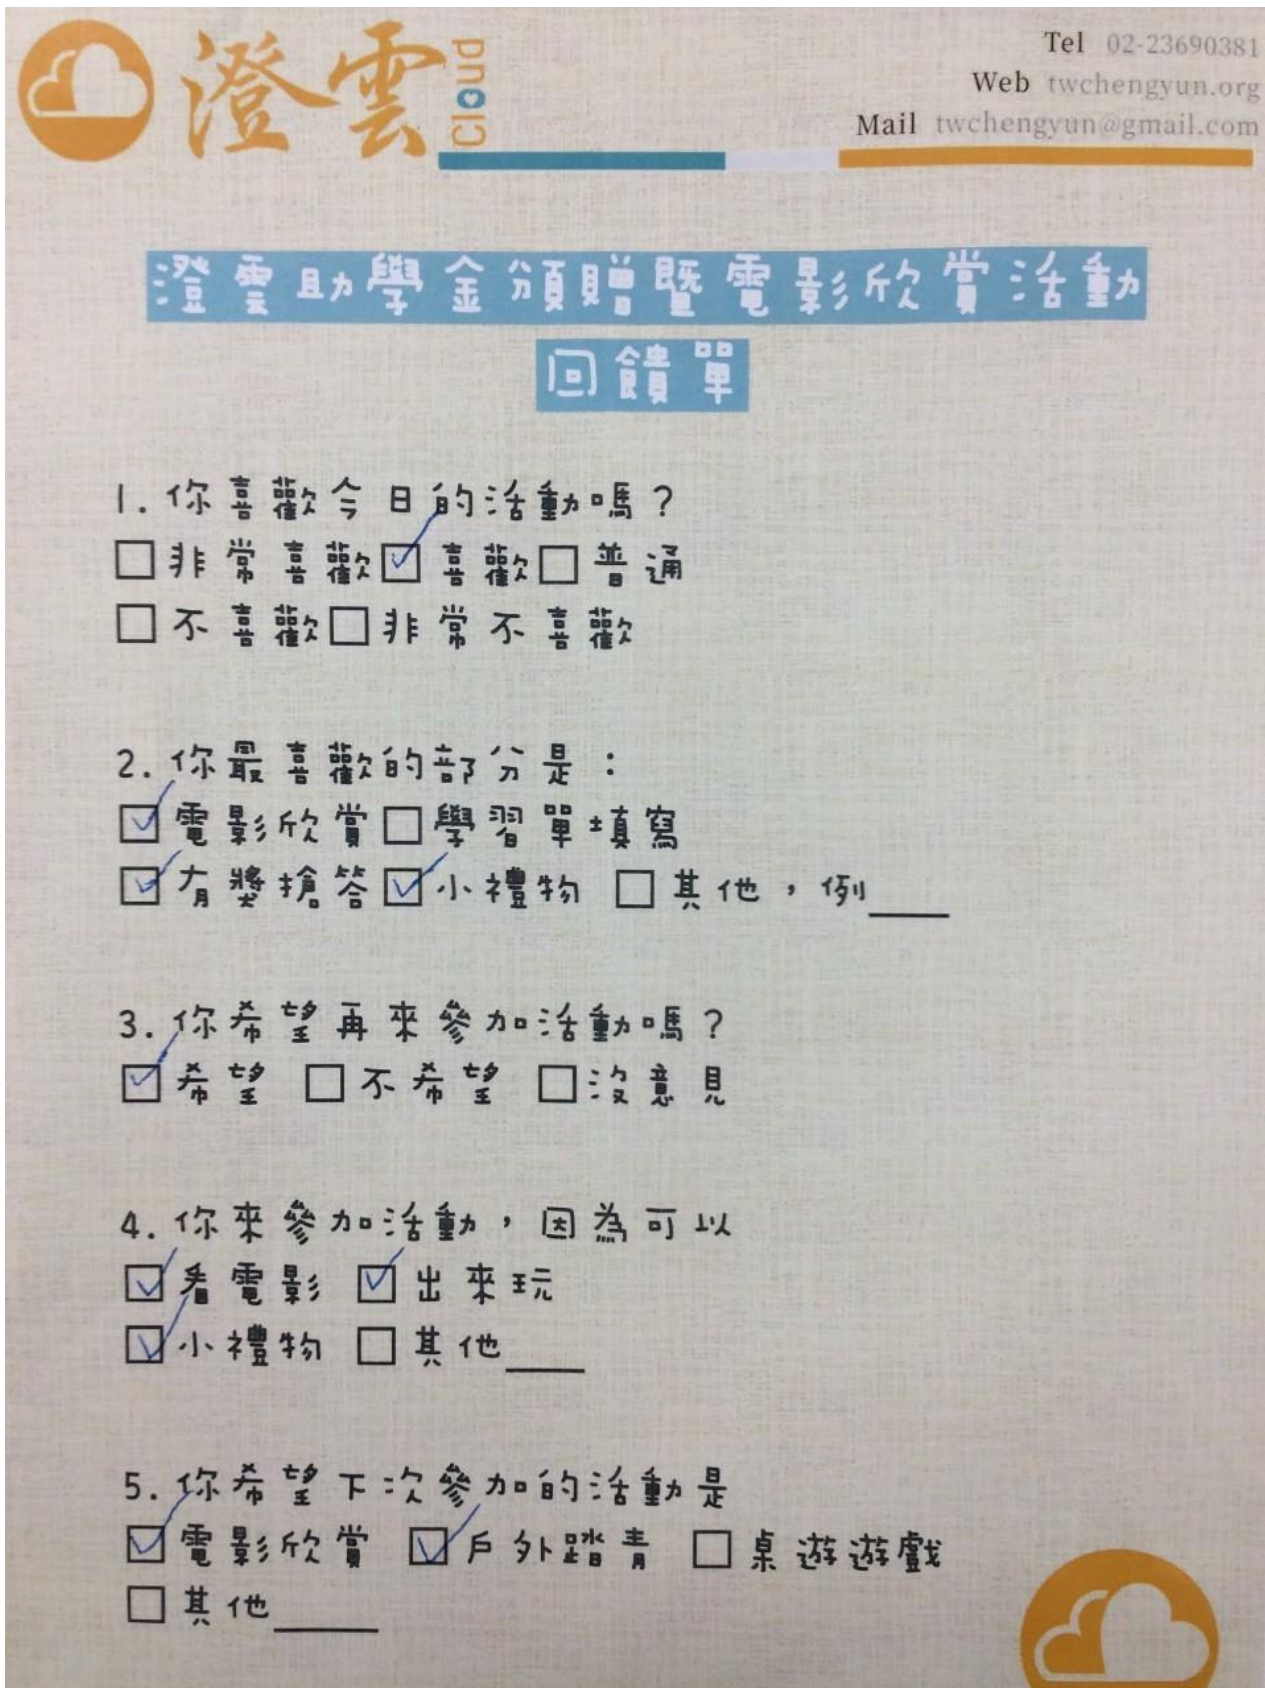 澄雲 Cloud
Tel 02-23690381
Web twchengyun.org
Mail twchengyun@gmail.com
澄雲助學金頒贈暨電影欣賞活動
回饋單
1. 你喜歡今日的活動嗎？
□非常喜歡☑喜歡□普通
□不喜歡□非常不喜歡
2. 你最喜歡的部分是：
☑電影欣賞□學習單填寫
☑有獎搶答☑小禮物 □其他，例____
3. 你希望再來參加活動嗎？
☑希望 □不希望 □沒意見
4. 你來參加活動，因為可以
☑看電影 ☑出來玩
☑小禮物 □其他____
5. 你希望下次參加的活動是
☑電影欣賞 ☑戶外踏青 □桌遊遊戲
□其他____